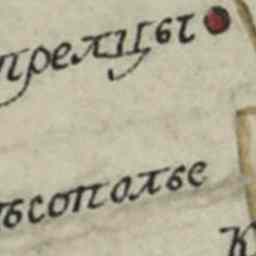 прелцы
ьсополье